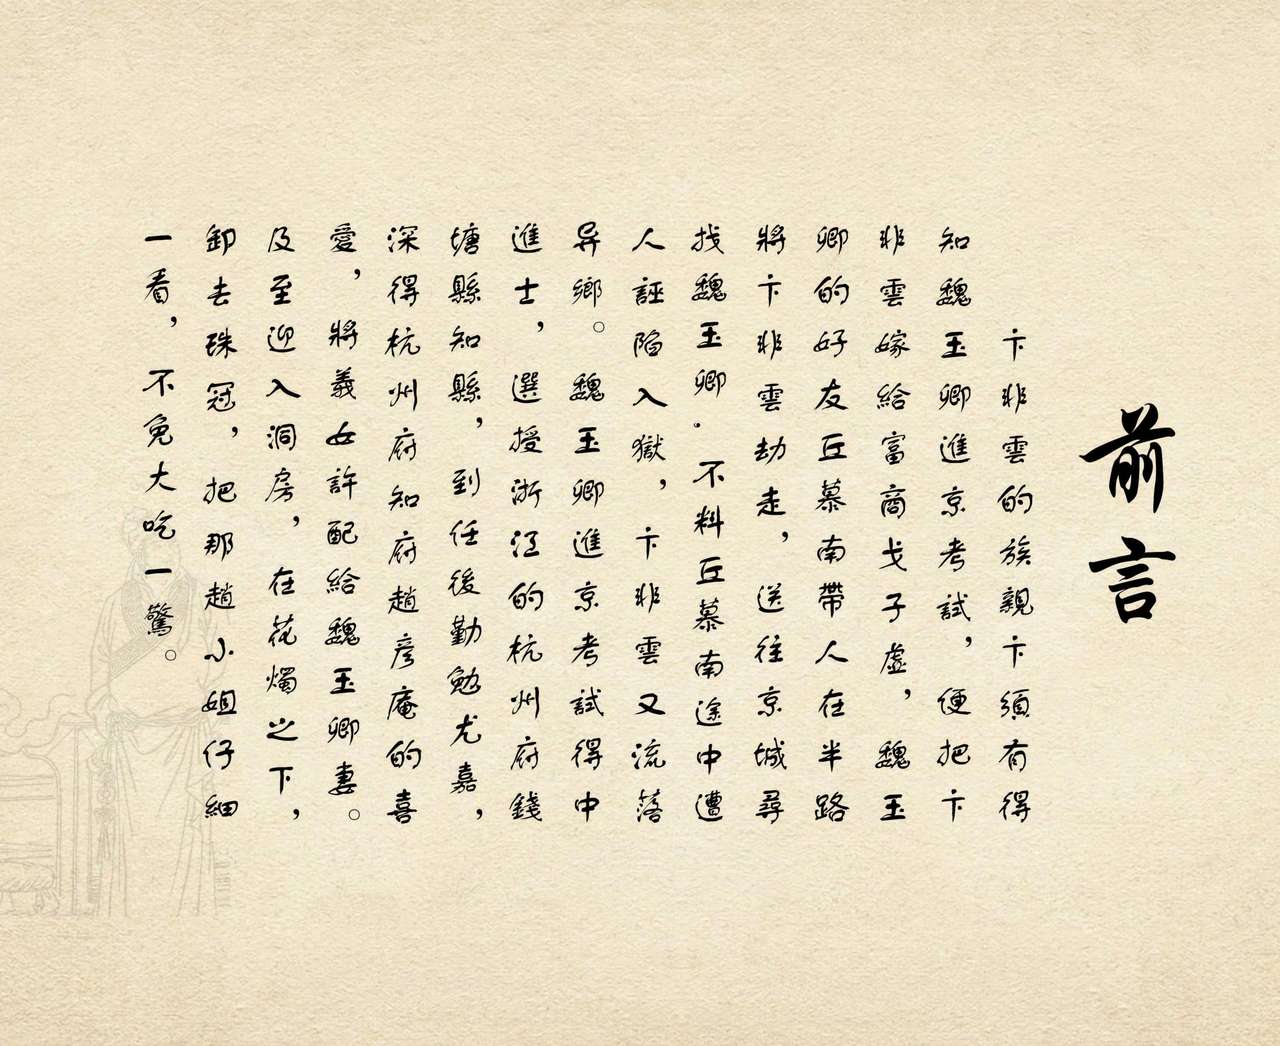 前言
卞非雲的族親卞須有得
知魏玉卿進京考試，便把卞
非雲嫁給富商戈子虛，魏玉
卿的好友丘慕南帶人在半路
將卞非雲劫走，送往京城尋
找魏玉卿．不料丘慕南途中遭
人誣陷入獄，卞非雲又流落
异鄉。魏玉卿進京考試得中
進士，選授浙江的杭州府錢
塘縣知縣，到任後勤勉尤嘉，
深得杭州府知府趙彥庵的喜
愛，將義女許配給魏玉卿妻。
及至迎入洞房，在花燭之下，
卸去珠冠，把那趙小姐仔細
一看，不免大吃一驚。